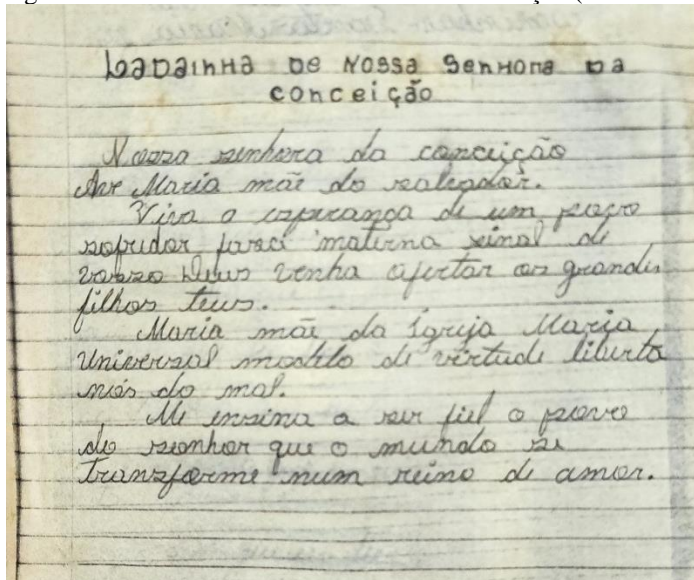 Ladainha de Nossa Senhora da
conceição
Nossa senhora da conceição
Ave Maria mãe do salvador.
Viva a esperança de um povo
sofridor face materna sinal de
vosso Deus venha ofertar os grandes
filhos teus.
Maria mãe da Igreja Maria
Universal modelo de virtude liberta
nós do mal.
Me ensina a ser fiel o povo
do senhor que o mundo se
transforme num reino de amor.